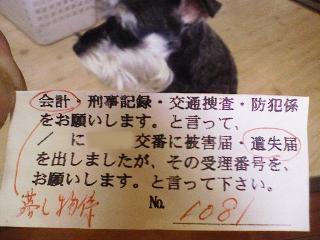 会計・刑事記録・交通捜査・防犯係
をお願いします。と言って、
/ に 交番に被害届・遺失届
を出しましたが、その受理番号を、
お願いします。と言って下さい。
落し物係 No. 1081